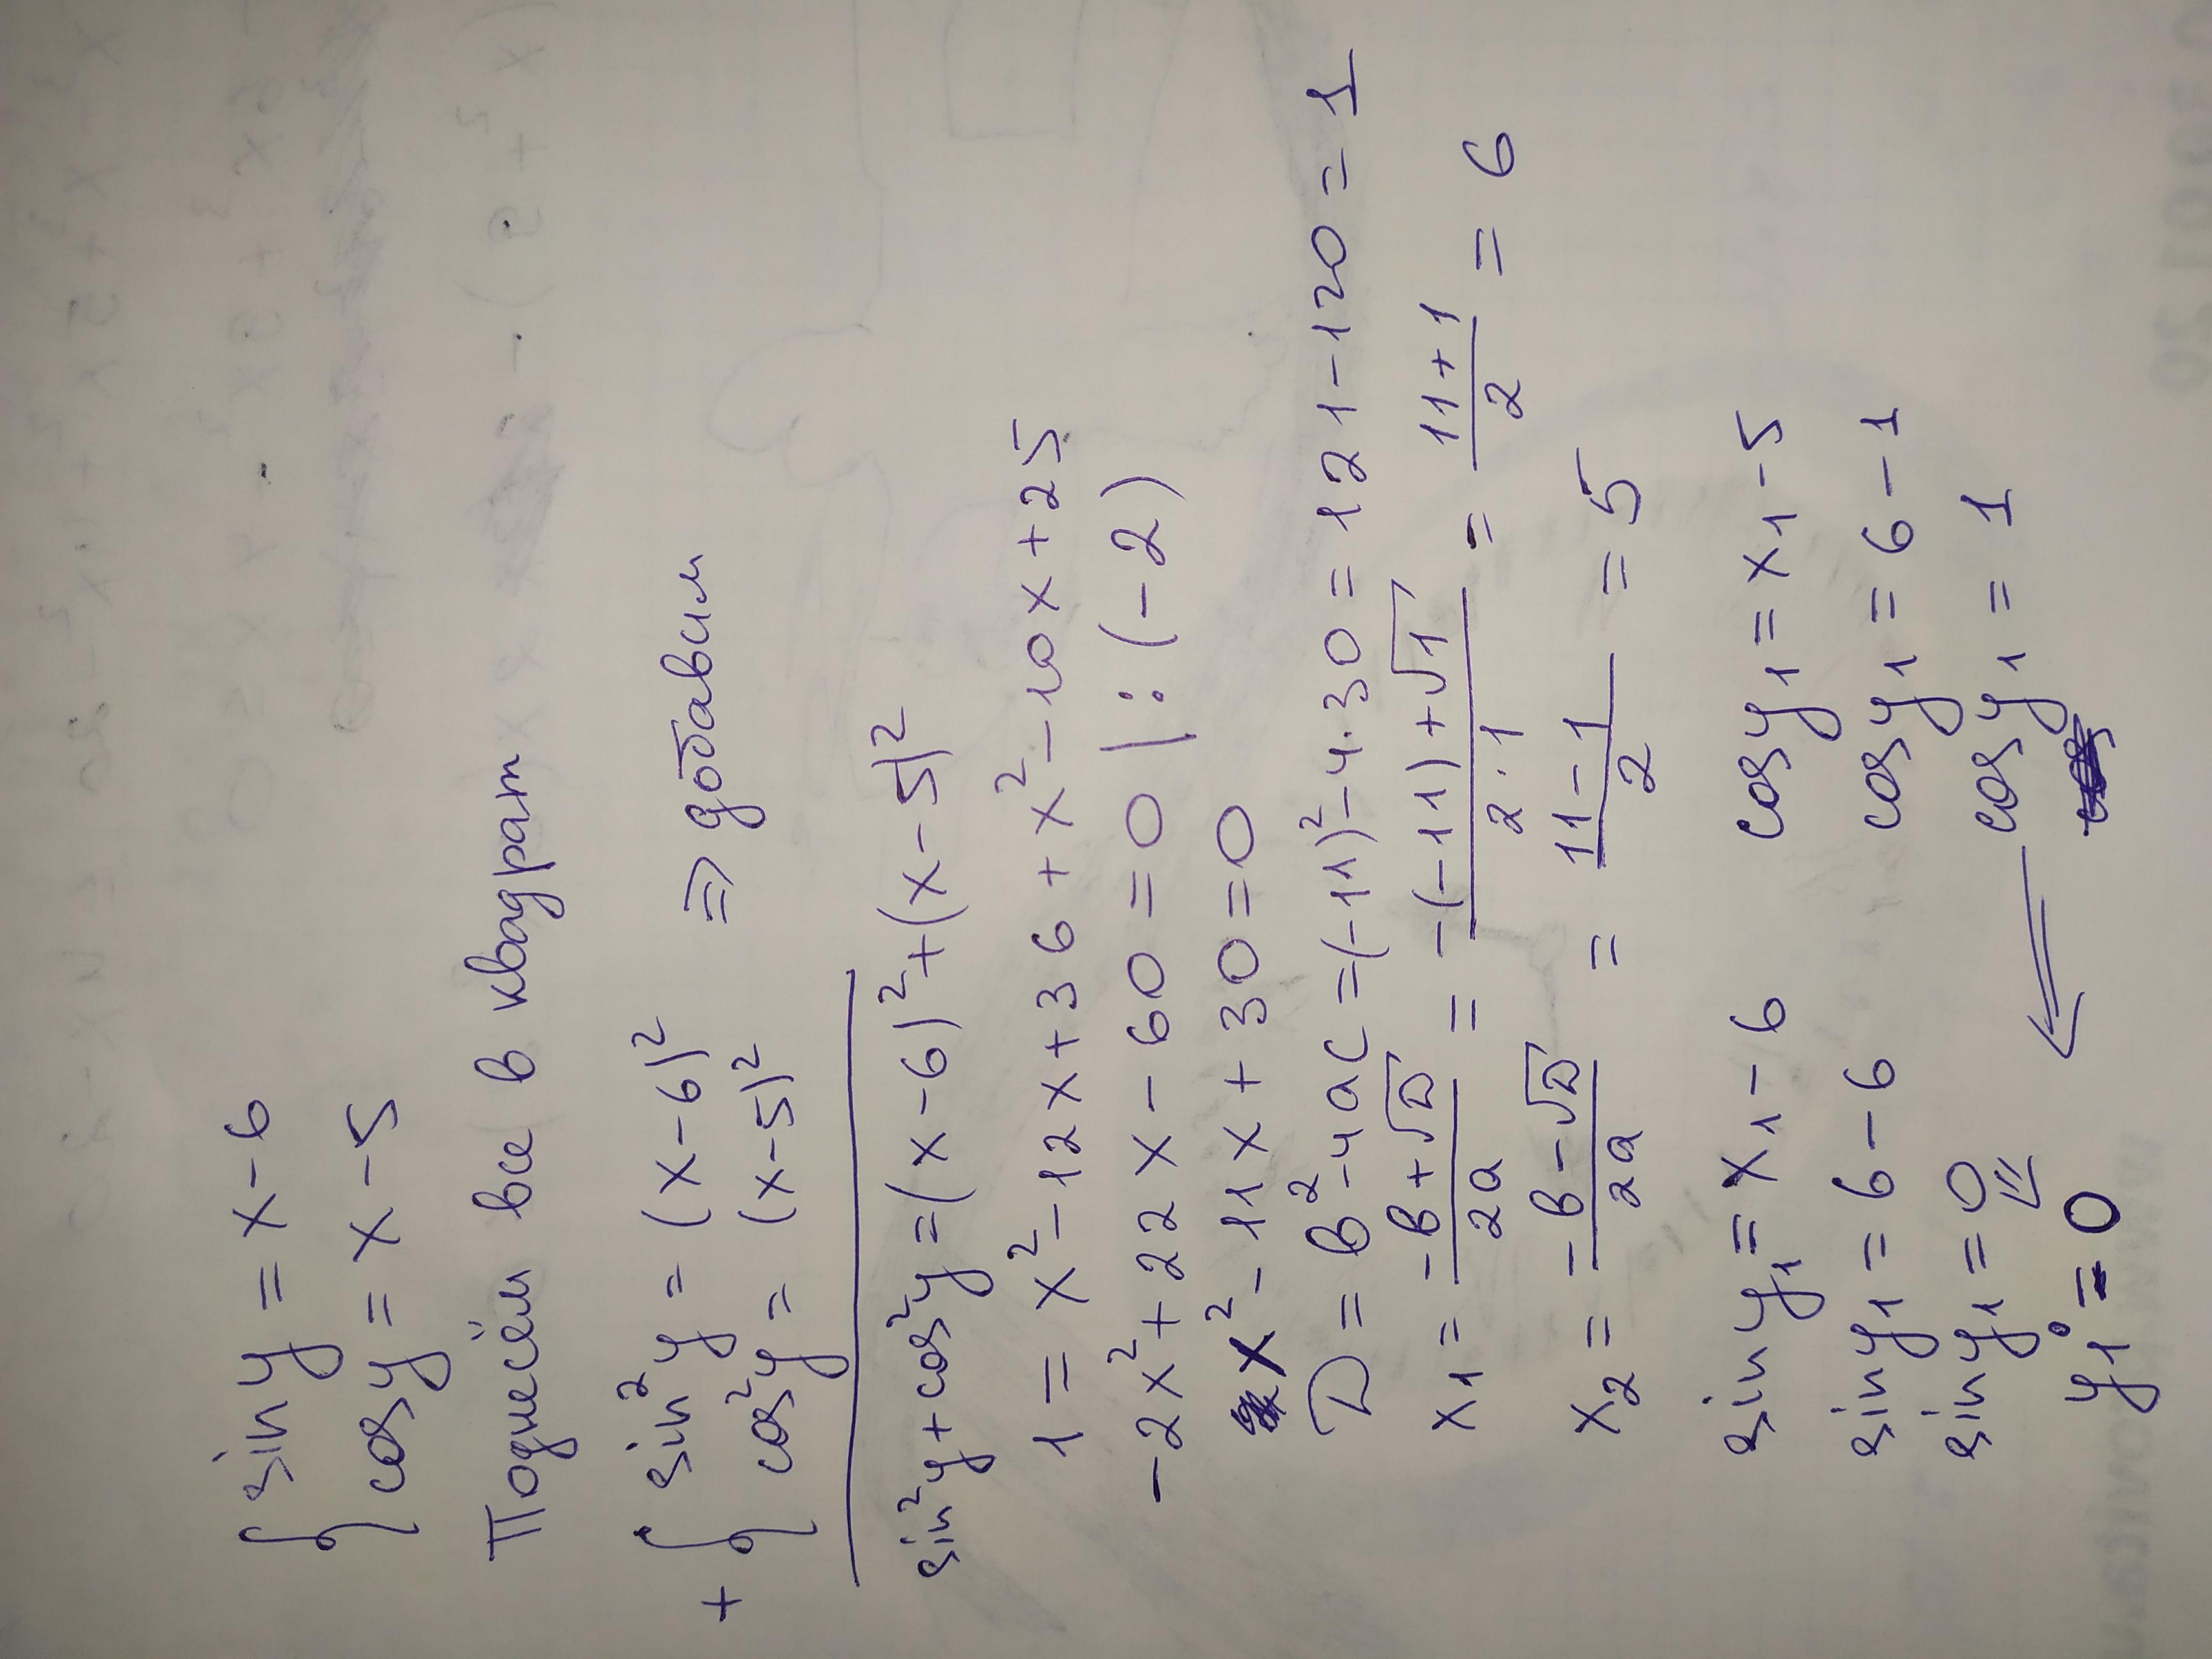 { sin y = x - 6
cos y = x - 5
Поднесём все в квадрат
+ { sin²y = (x-6)²
cos²y = (x-5)² => добавим
sin²y + cos²y = (x-6)² + (x-5)²
1 = x² - 12x + 36 + x² - 10x + 25
-2x² + 22x - 60 = 0 | : (-2)
x² - 11x + 30 = 0
D = b² - 4ac = (-11)² - 4·30 = 121 - 120 = 1
x₁ = (-b + √D)/2a = (-(-11) + √1)/(2·1) = (11+1)/2 = 6
x₂ = (-b - √D)/2a = (11-1)/2 = 5
sin y₁ = x₁ - 6 cos y₁ = x₁ - 5
sin y₁ = 6 - 6 cos y₁ = 6 - 1
sin y₁ = 0 cos y₁ = 1
y₁ = 0